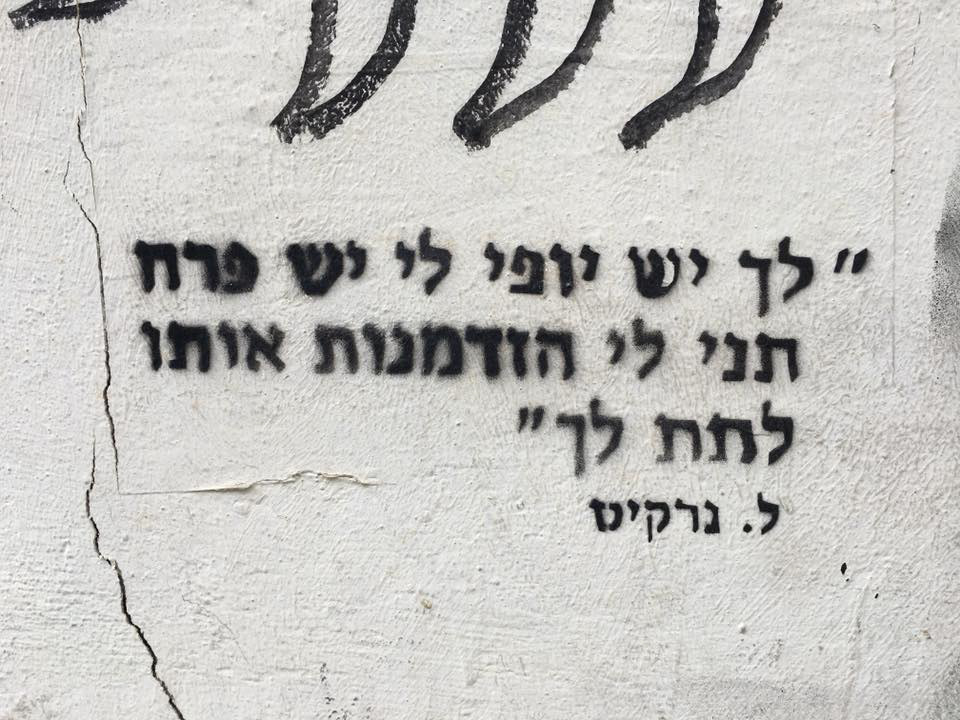 "לך יש יופי לי יש פרח
תני לי הזדמנות אותו
לתת לך"
ל. נרקיס